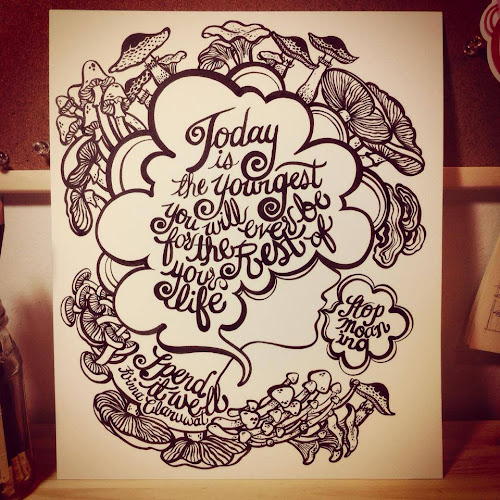 Today
is
the youngest
you will ever be
for the Rest of
your
life
Stop
moan
ing
Spend
it well